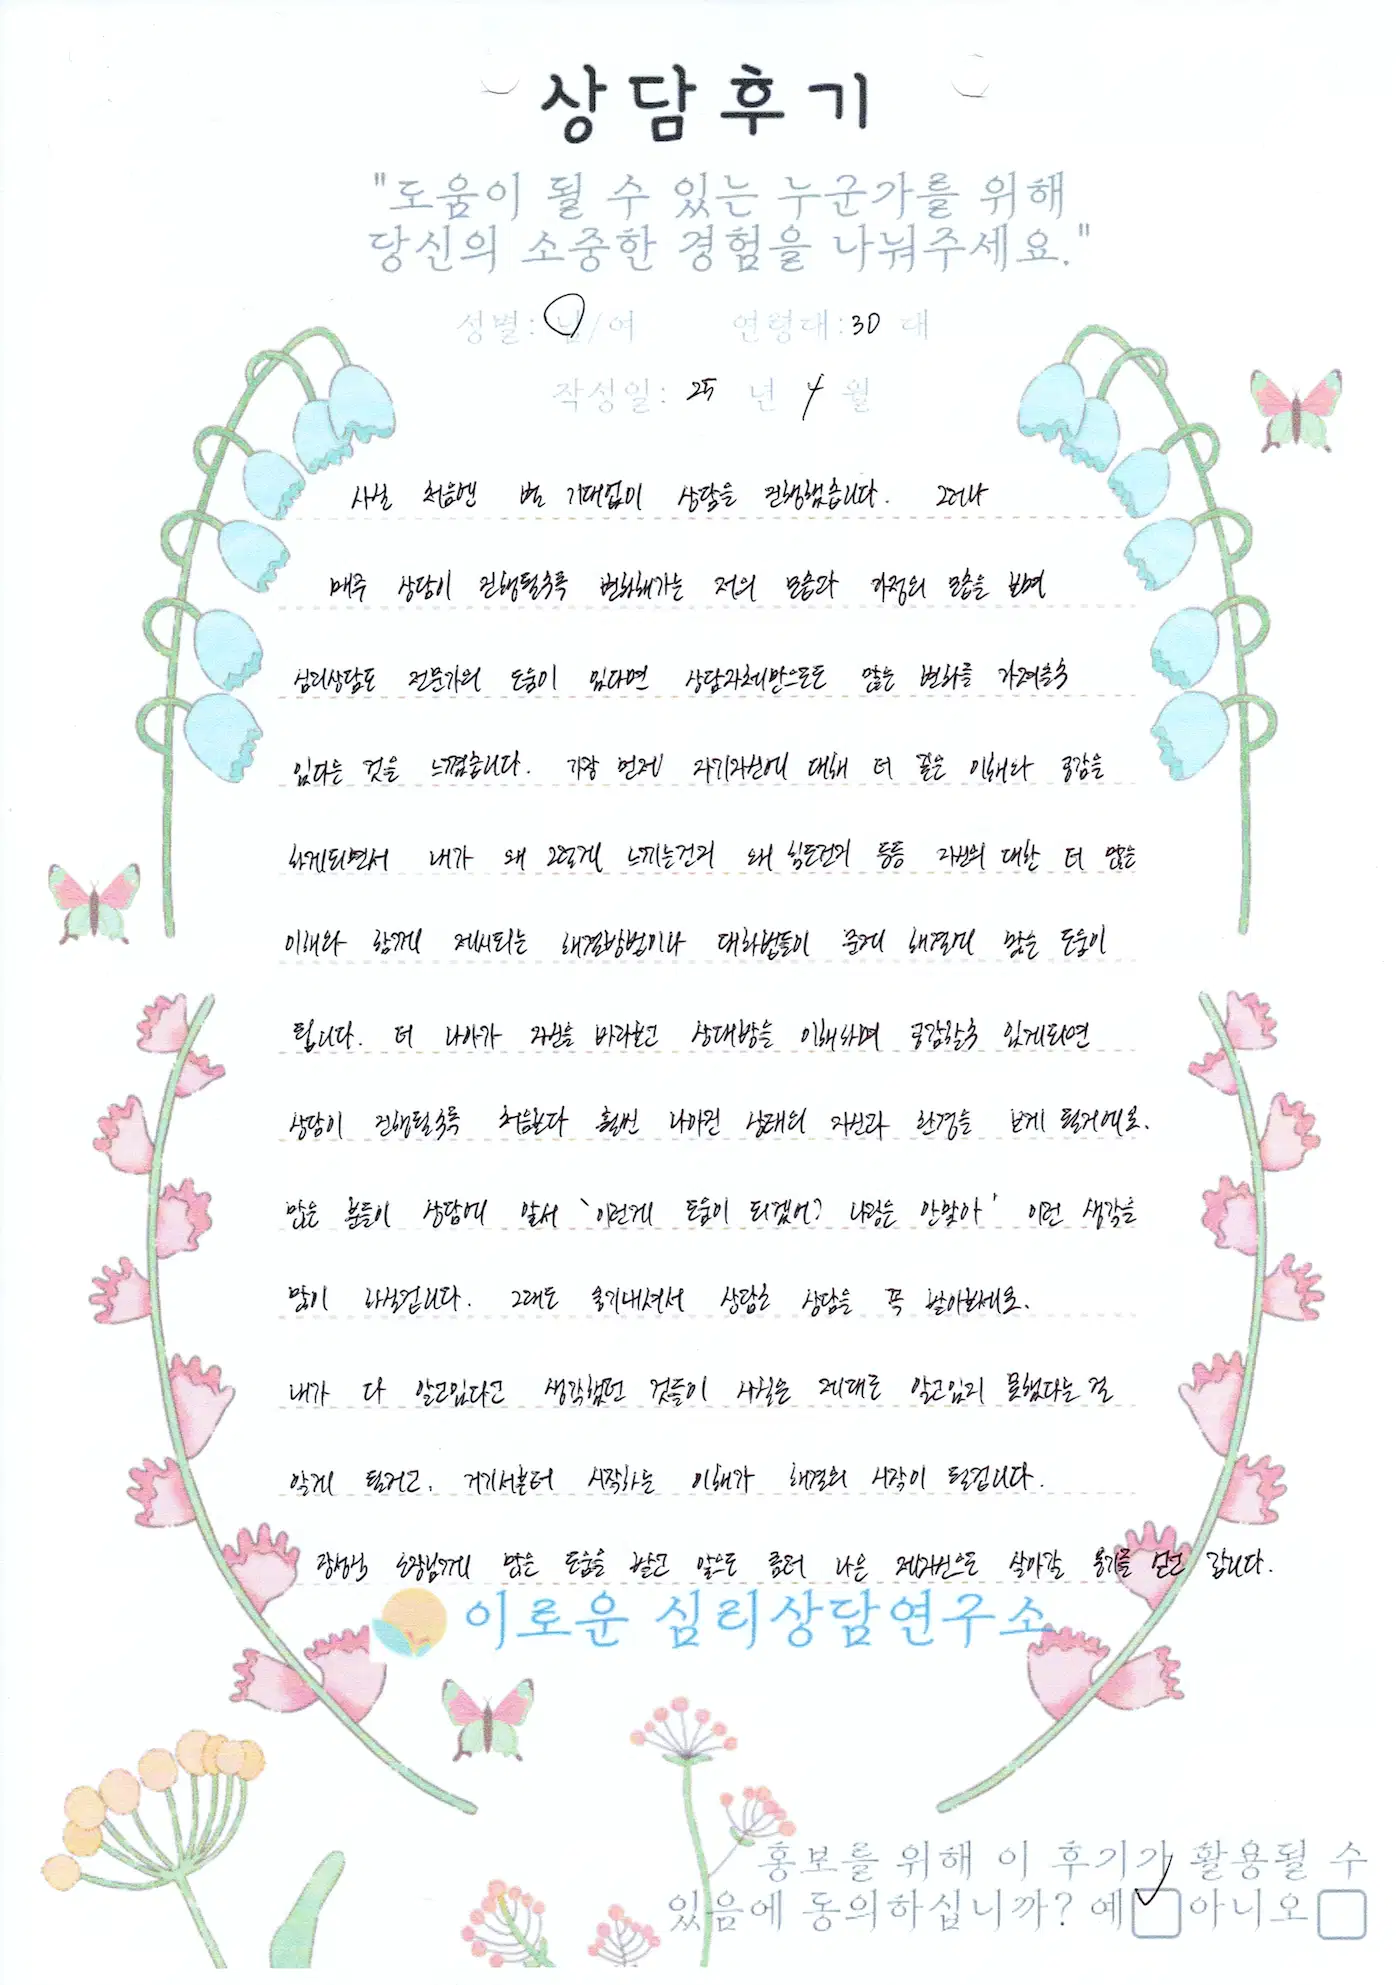 상담후기
"도움이 될 수 있는 누군가를 위해
당신의 소중한 경험을 나눠주세요."
성별: 남/여 연령대:30 대
작성일: 25 년 4 월
사실 처음엔 별 기대없이 상담을 진행했습니다. 그러나
매주 상담이 진행될수록 변화해가는 저의 모습과 가정의 모습을 보며
심리상담도 전문가의 도움이 있다면 상담자체만으로도 많은 변화를 가져올수
있다는 것을 느꼈습니다. 가장 먼저 자기자신에 대해 더 깊은 이해와 공감을
하게되면서 내가 왜 그렇게 느끼는건지 왜 힘든건지 등등 자신의 대한 더 많은
이해와 함께 제시되는 해결방법이나 대화법들이 문제 해결에 많은 도움이
됩니다. 더 나아가 자신을 바라보고 상대방을 이해하며 공감할수 있게되면
상담이 진행될수록 처음보다 훨씬 나아진 상태의 자신과 환경을 보게 될거에요.
많은 분들이 상담에 앞서 '이런게 도움이 되겠어? 나랑은 안맞아' 이런 생각을
많이 하실겁니다. 그래도 용기내셔서 상담소 상담을 꼭 받아보세요.
내가 다 알고있다고 생각했던 것들이 사실은 제대로 알고있지 못했다는 걸
알게 될거고, 거기서부터 시작하는 이해가 해결의 시작이 될겁니다.
소장님께 많은 도움을 받고 앞으로 좀더 나은 제자신으로 살아갈 용기를 얻고 갑니다.
이로운 심리상담연구소
홍보를 위해 이 후기가 활용될 수
있음에 동의하십니까? 예 아니오